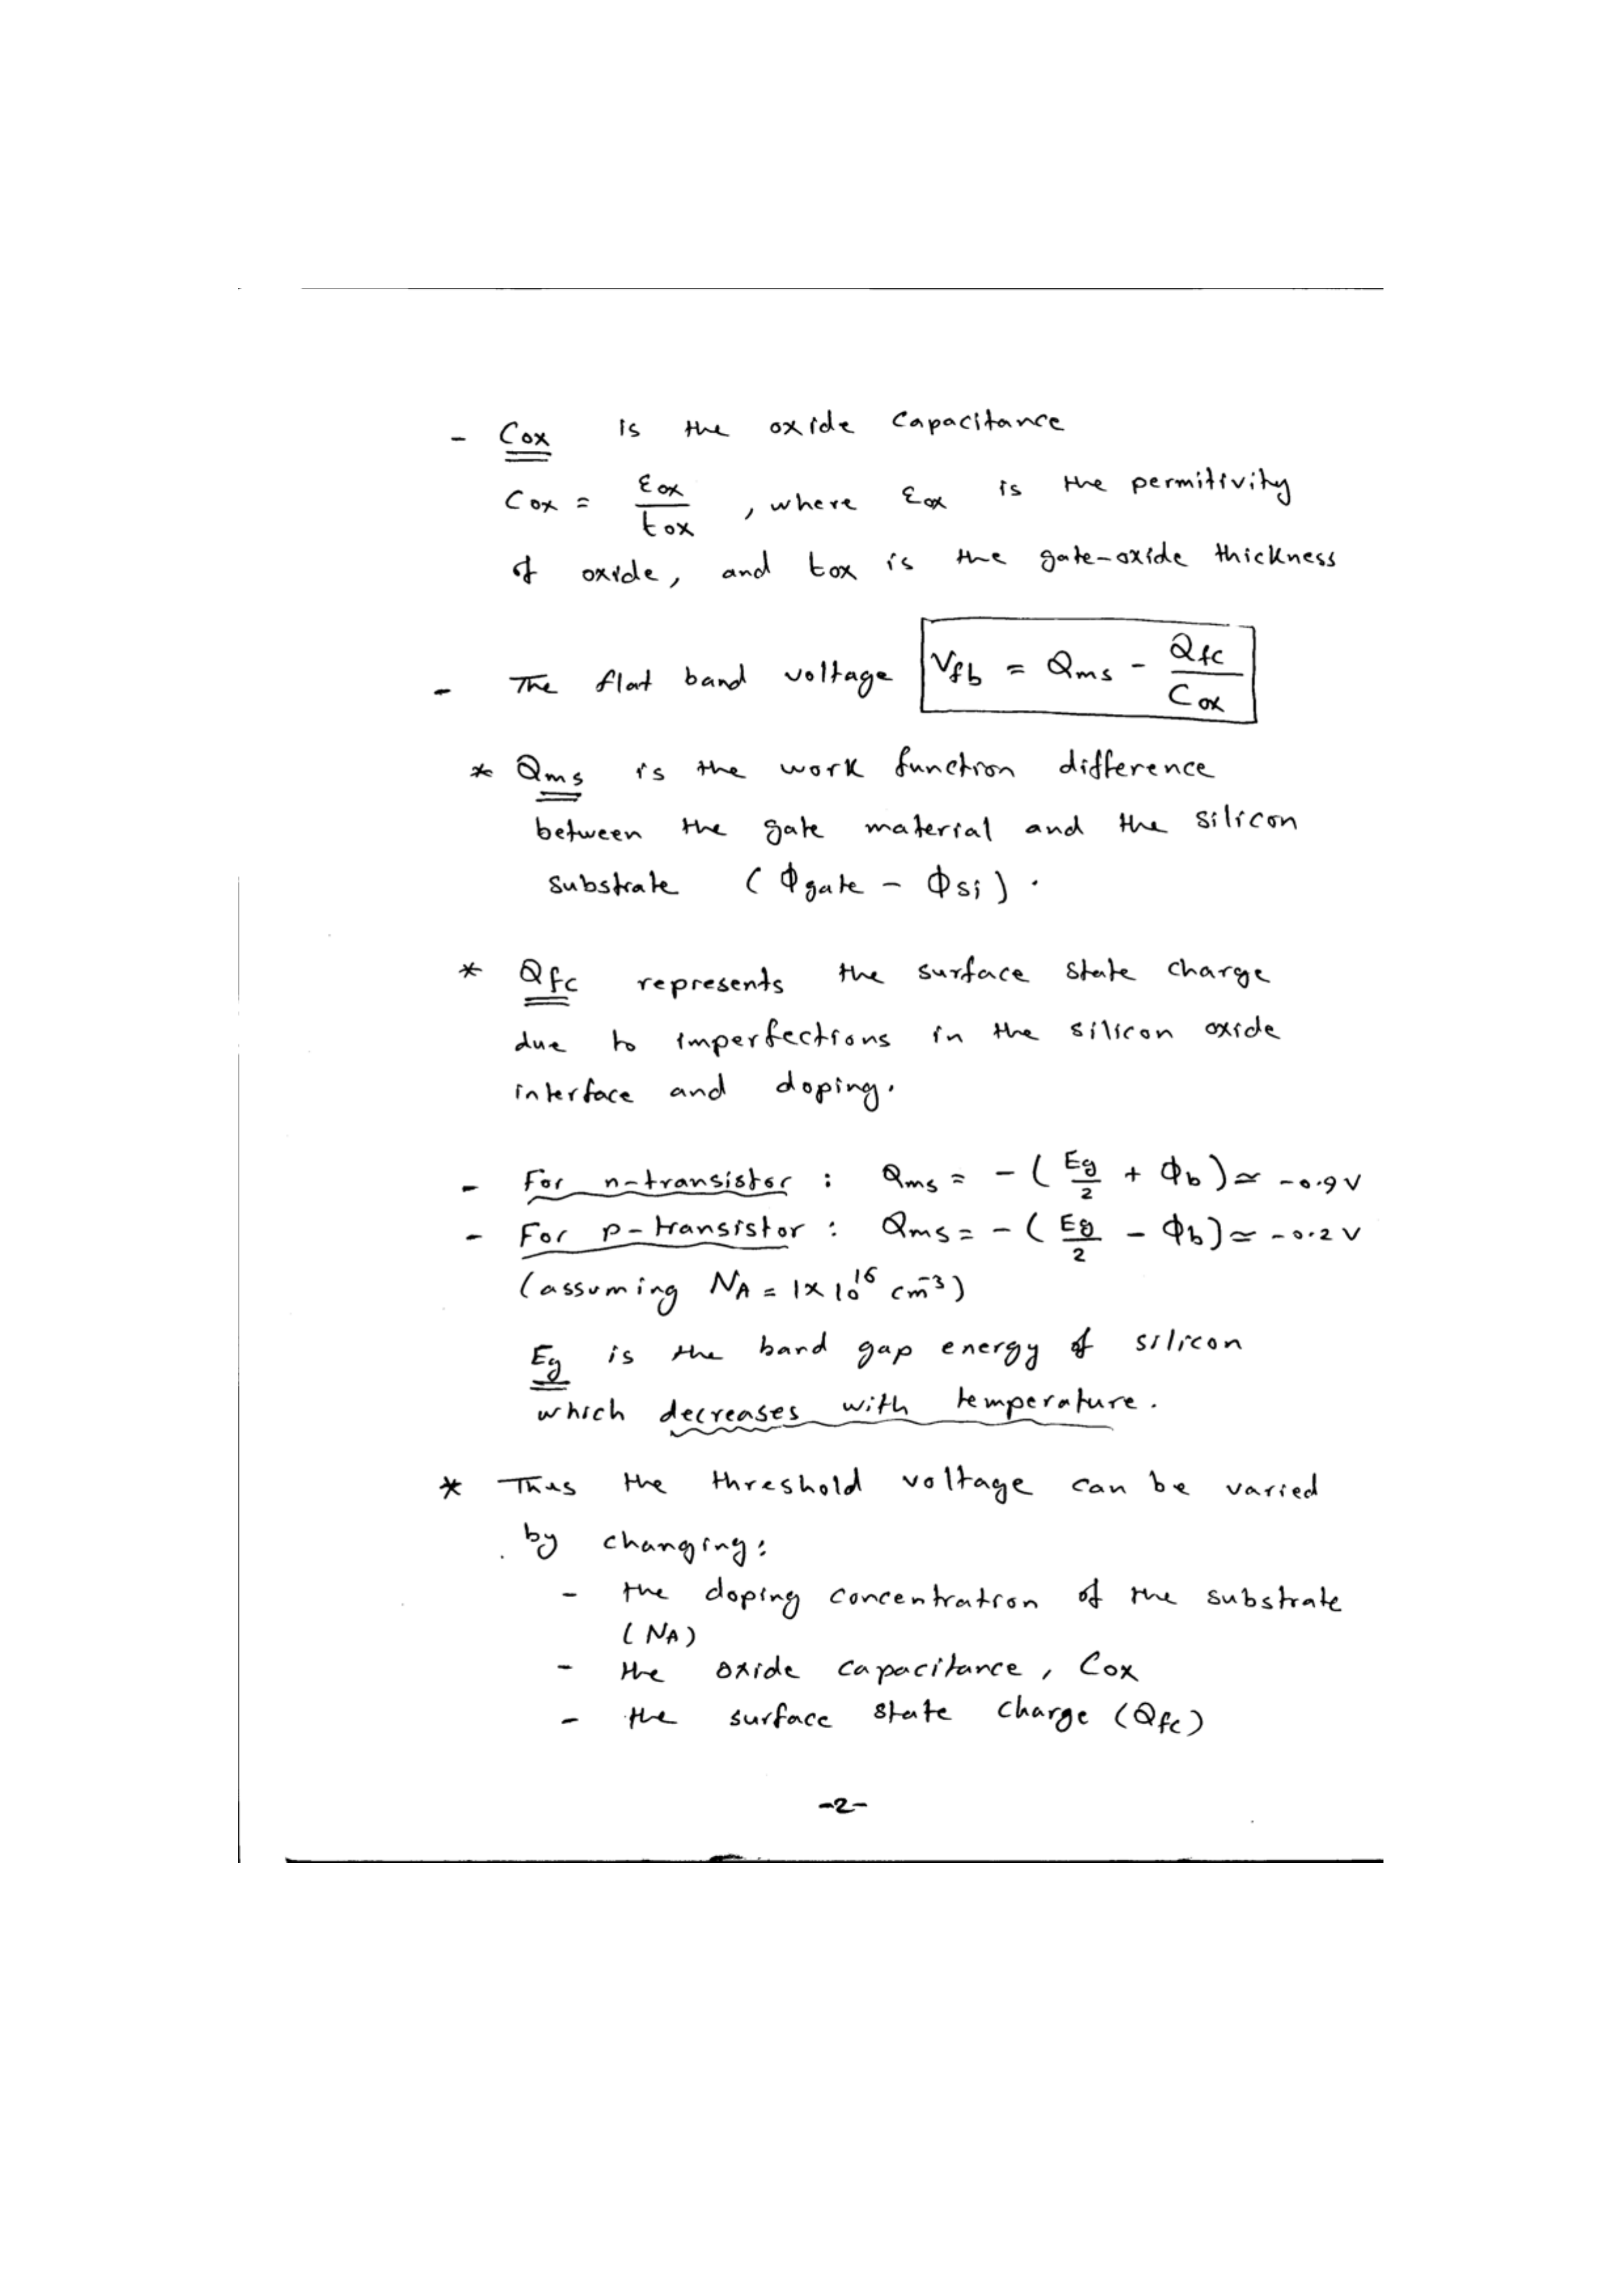 - Cox is the oxide capacitance
Cox = εox / tox , where εox is the permitivity
of oxide, and tox is the gate-oxide thickness
- The flat band voltage Vfb = Qms - Qfc / Cox
* Qms is the work function difference
between the gate material and the silicon
substrate (Φgate - Φsi).
* Qfc represents the surface state charge
due to imperfections in the silicon oxide
interface and doping.
- For n-transistor : Qms = -(Eg/2 + Φb) ≃ -0.9 V
- For p-transistor : Qms = -(Eg/2 - Φb) ≃ -0.2 V
(assuming NA = 1x10^16 cm^-3)
Eg is the band gap energy of silicon
which decreases with temperature.
* Thus the threshold voltage can be varied
by changing:
- the doping concentration of the substrate
(NA)
- the oxide capacitance, Cox
- the surface state charge (Qfc)
-2-